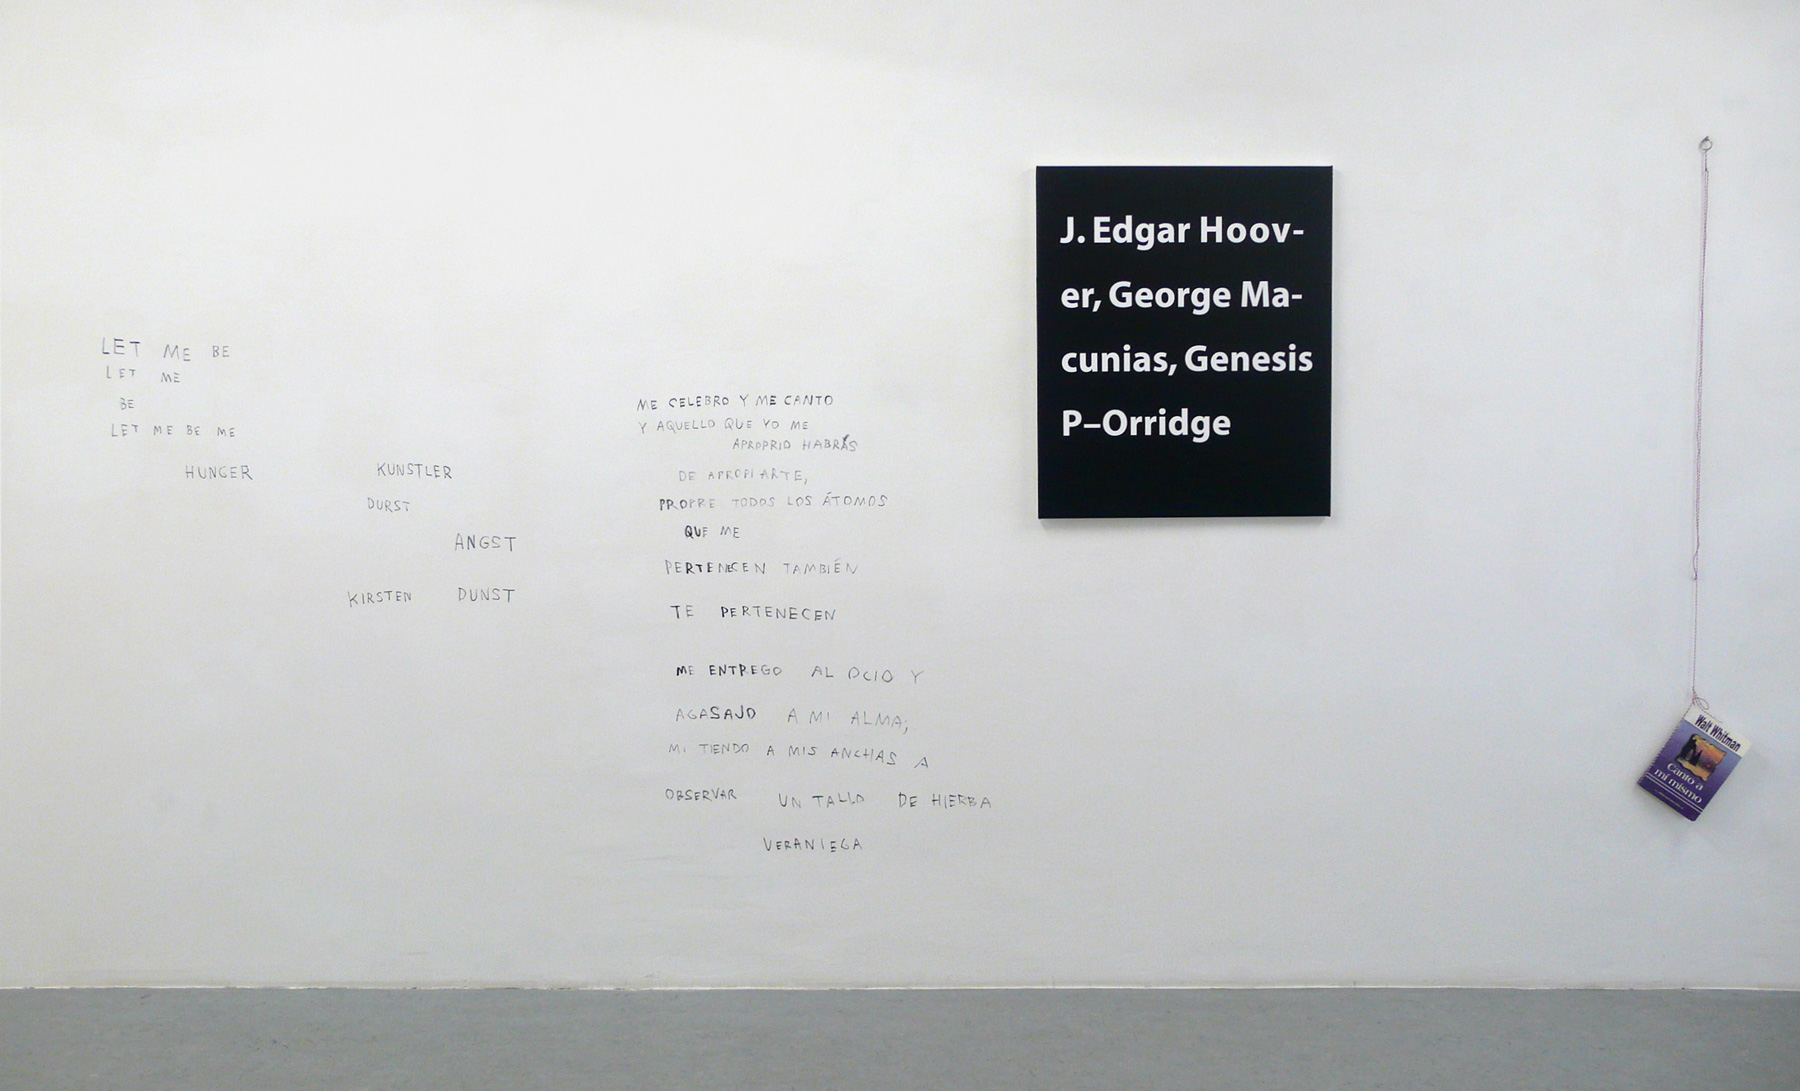 LET ME BE
LET ME
BE
LET ME BE ME
HUNGER KUNSTLER
DURST
ANGST
KIRSTEN DUNST
ME CELEBRO Y ME CANTO
Y AQUELLO QUE YO ME
APROPRIO HABRÁS
DE APROPIARTE,
PROPRE TODOS LOS ÁTOMOS
QUE ME
PERTENECEN TAMBIÉN
TE PERTENECEN
ME ENTREGO AL OCIO Y
AGASAJO A MI ALMA;
MI TIENDO A MIS ANCHAS A
OBSERVAR UN TALLO DE HIERBA
VERANIEGA
J. Edgar Hoov-
er, George Ma-
cunias, Genesis
P–Orridge
Walt Whitman
Canto a
mí mismo